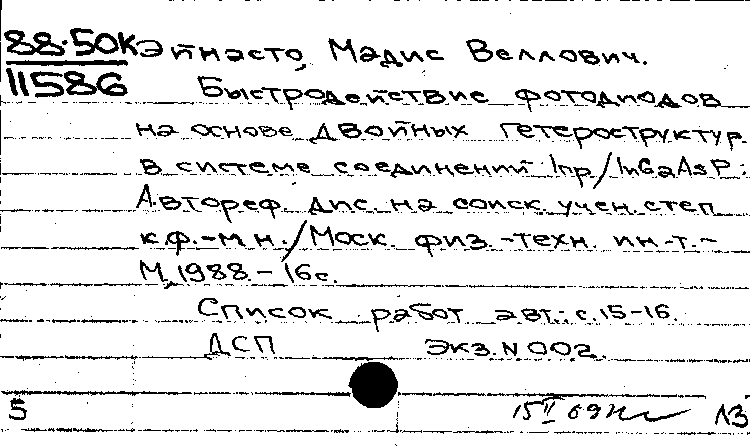 88-50К Эйнасто, Мадис Веллович.
11586 Быстродействие фотодиодов
на основе двойных гетероструктур
в системе соединений Inp/InGaAsP:
Автореф. дис. на соиск. учен. степ
к.ф.-м.н./Моск. физ.-техн. ин-т.-
М., 1988.-16с.
Список работ авт.: с.15-16.
ДСП Экз. N 002.
5 15 II 69 N3